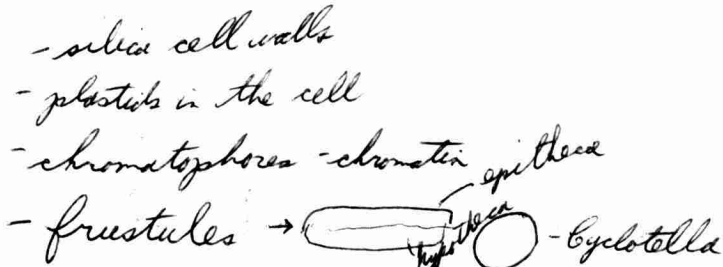 - silica cell walls
- plastids in the cell
- chromatophores - chromatin
epitheca
- frustules → hypotheca - Cyclotella